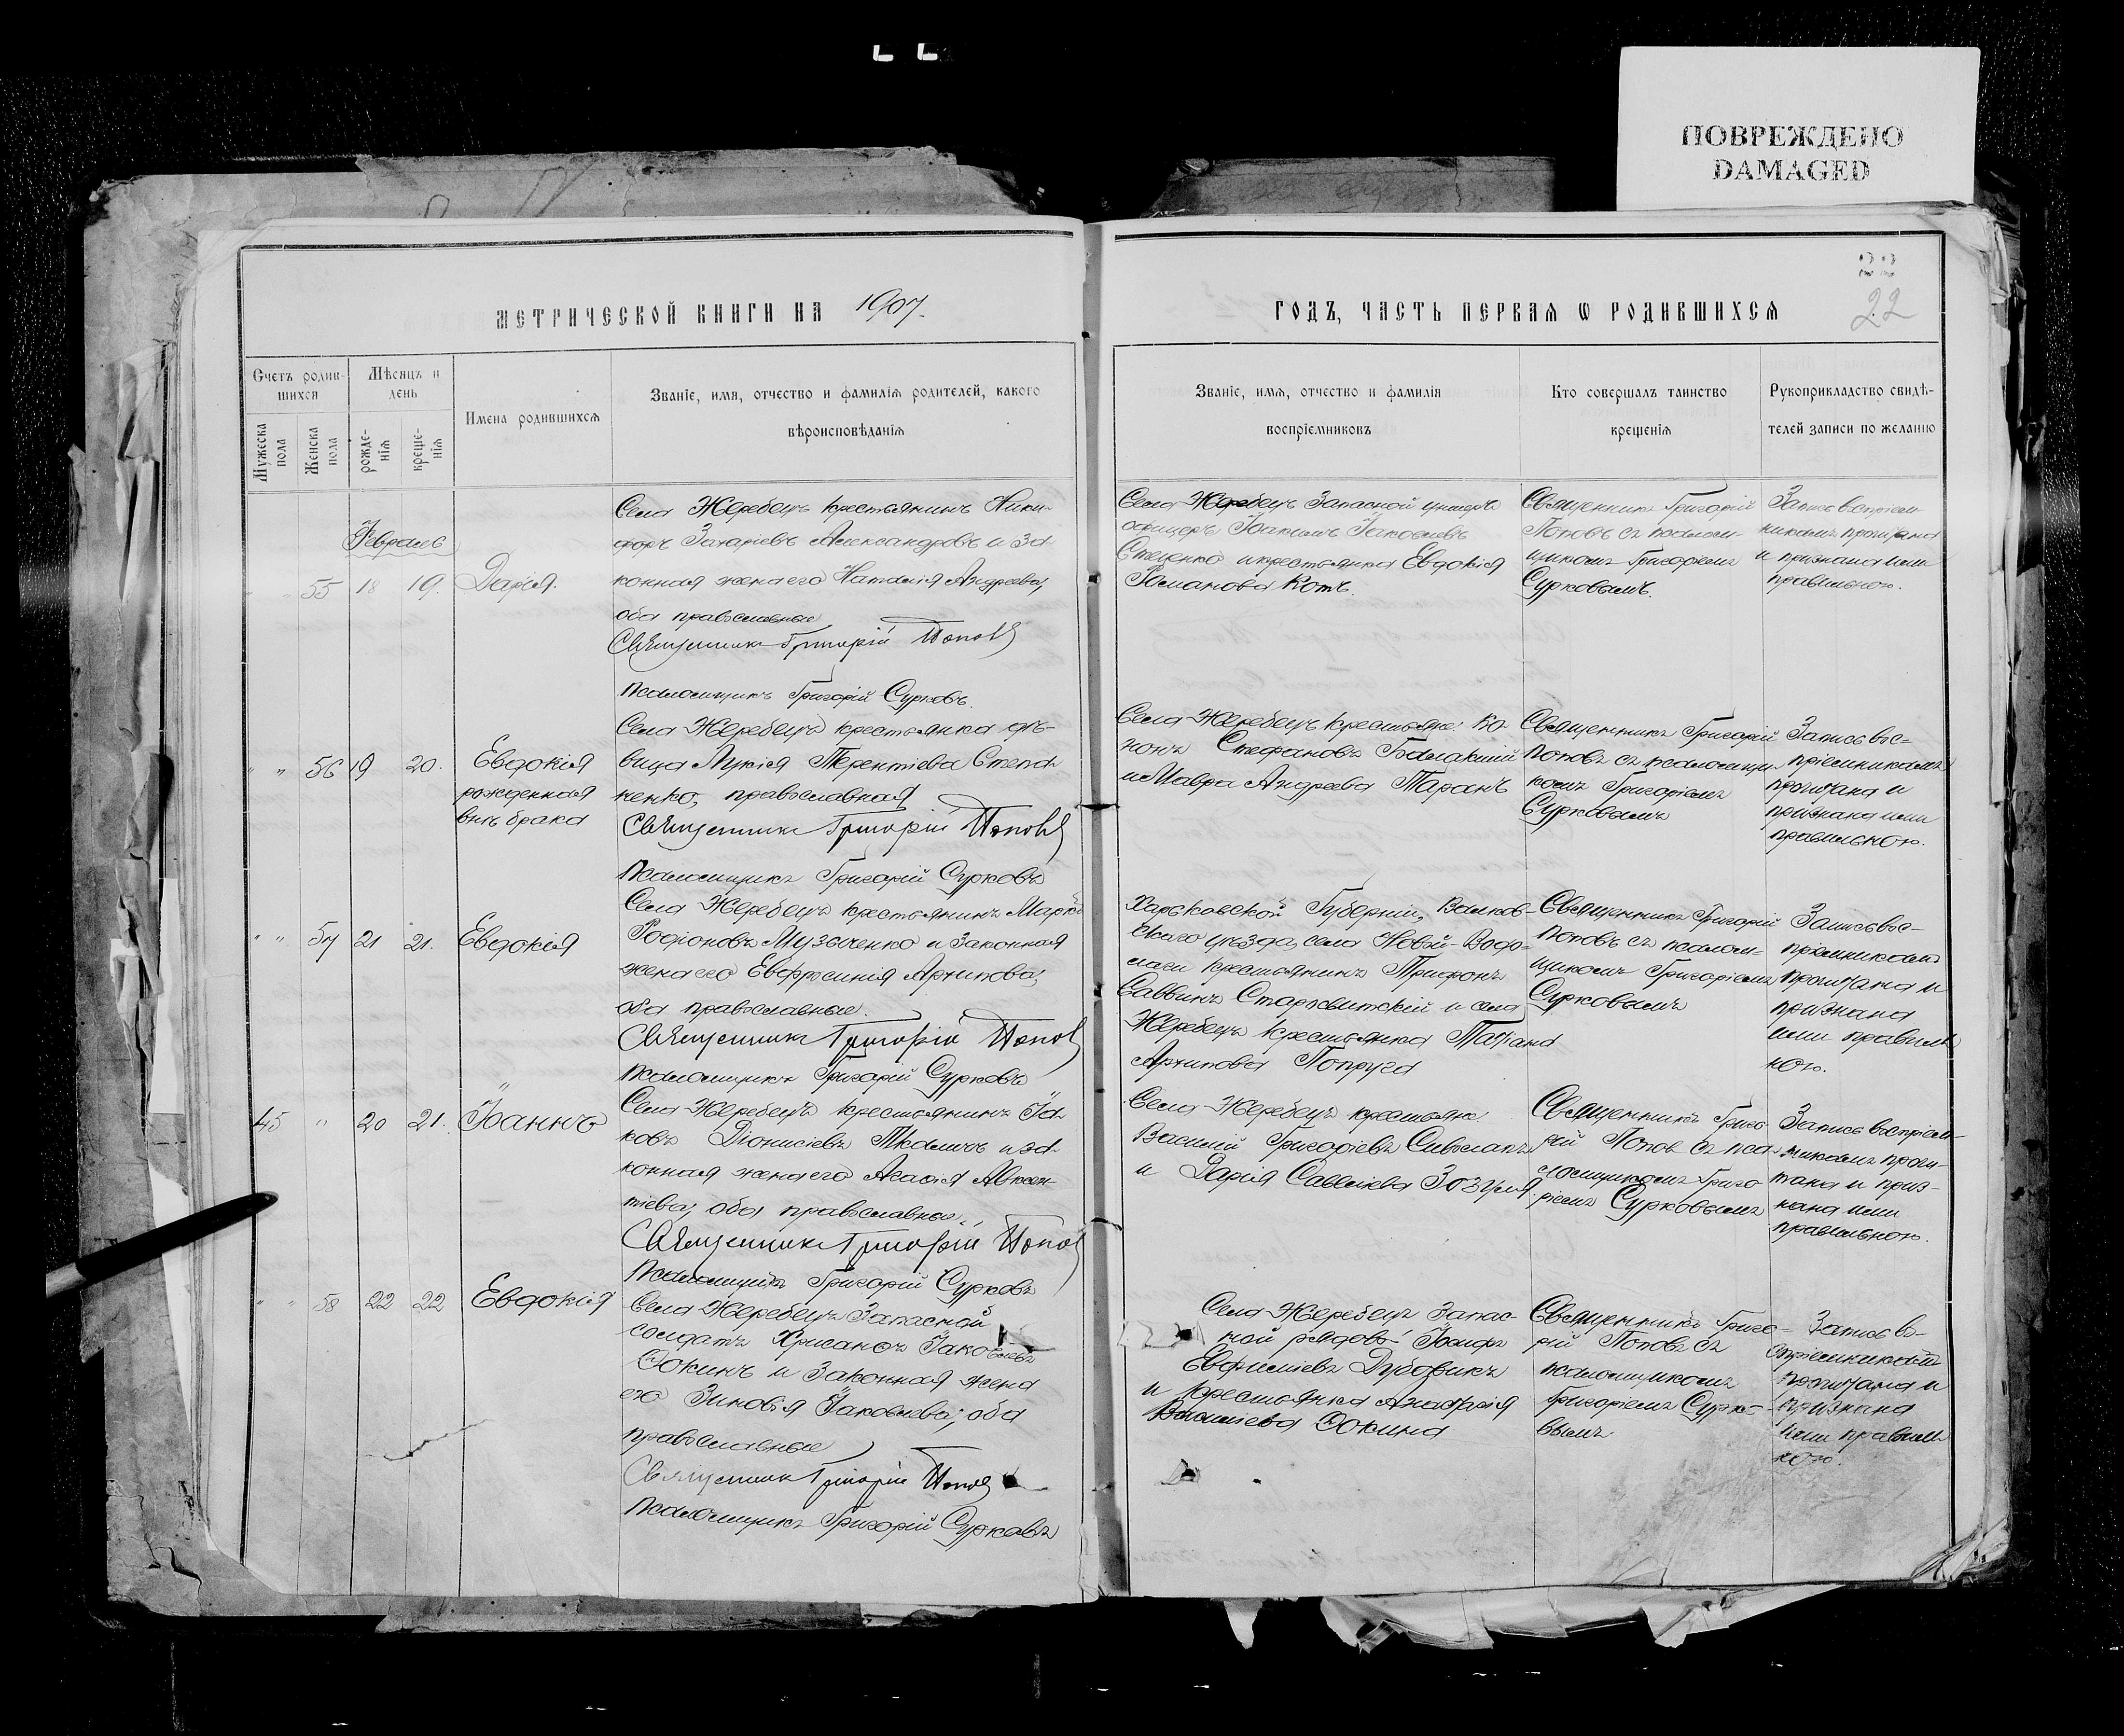 ПОВРЕЖДЕНО
DAMAGED
22
22
МЕТРИЧЕСКОЙ КНИГИ НА 1907.
ГОДЪ, ЧАСТЬ ПЕРВАЯ Ѡ РОДИВШИХСЯ
Счетъ родив-
шихся
Мужеска пола
Женска пола
Мѣсяцъ и
день
рожде-
нія
креще-
нія
Имена родившихся
Званіе, имя, отчество и фамилія родителей, какого
вѣроисповѣданія
Званіе, имя, отчество и фамилія
воспріемниковъ
Кто совершалъ таинство
крещенія
Рукоприкладство свидѣ-
телей записи по желанію
Февраль
55 18 19. Дарія.
Села Жеребецъ крестьянинъ Ники-
форъ Захаріевъ Александровъ и за-
конная жена его Наталія Андреева,
оба православные
Священникъ Григорій Поповъ
Псаломщикъ Григорій Сурковъ.
Села Жеребецъ Запасной унтеръ
офицеръ Іоакимъ Іаковлевъ
Стеценко и крестьянка Евдокія
Романова Котъ.
Священникъ Григорій
Поповъ съ псалом-
щикомъ Григоріемъ
Сурковымъ.
Запись воспріем-
никамъ прочитана
и признана ими
правильною.
" " 56 19 20. Евдокія
рожденная
внѣ брака
Села Жеребецъ крестьянка дѣ-
вица Лукія Терентіева Степа-
ненко, православная
Священникъ Григорій Поповъ
Псаломщикъ Григорій Сурковъ
Села Жеребецъ крестьяне: Ко-
нонъ Стефановъ Балакшій
и Мавра Андреева Таранъ
Священникъ Григорій
Поповъ съ псаломщи-
комъ Григоріемъ
Сурковымъ
Запись вос-
пріемникамъ
прочитана и
признана ими
правильною.
" " 57 21 21. Евдокія
Села Жеребецъ крестьянинъ Маркъ
Родіоновъ Музыченко и законная
жена его Евфросинія Архипова,
оба православные.
Священникъ Григорій Поповъ
Псаломщикъ Григорій Сурковъ
Харьковской Губерніи, Валков-
скаго уѣзда, села Новой-Водо-
лаги крестьянинъ Трифонъ
Саввинъ Старосвитскій и села
Жеребецъ крестьянка Татіана
Архипова Попруга
Священникъ Григорій
Поповъ съ псалом-
щикомъ Григоріемъ
Сурковымъ
Запись вос-
пріемникамъ
прочитана и
признана
ими правиль
ною.
45 " 20 21. Іоаннъ
Села Жеребецъ крестьянинъ Іа-
ковъ Діонисіевъ Ткаличъ и за-
конная жена его Агафія Авксен-
тіева; оба православные.
Священникъ Григорій Поповъ
Псаломщикъ Григорій Сурковъ
Села Жеребецъ крестьяне:
Василій Григоріевъ Сиволапъ
и Дарія Савеліева Зозуля.
Священникъ Григо-
рій Поповъ съ пса-
ломщикомъ Григо-
ріемъ Сурковымъ
Запись воспріем-
никамъ прочи-
тана и приз-
нана ими
правильною.
" " 58 22 22 Евдокія
Села Жеребецъ Запасной
солдатъ Хрисанѳъ Іаковлевъ
Ѳокинъ и законная жена
его Зиновія Іаковлева; оба
православные
Священникъ Григорій Поповъ
Псаломщикъ Григорій Сурковъ
Села Жеребецъ Запас-
ной рядовой Іосифъ
Евфиміевъ Дубовикъ
и крестьянка Агафія
Василіева Ѳокина
Священникъ Григо-
рій Поповъ съ
псаломщикомъ
Григоріемъ Сурко-
вымъ
Запись во-
спріемникамъ
прочитана и
признана
ими правиль
ною.